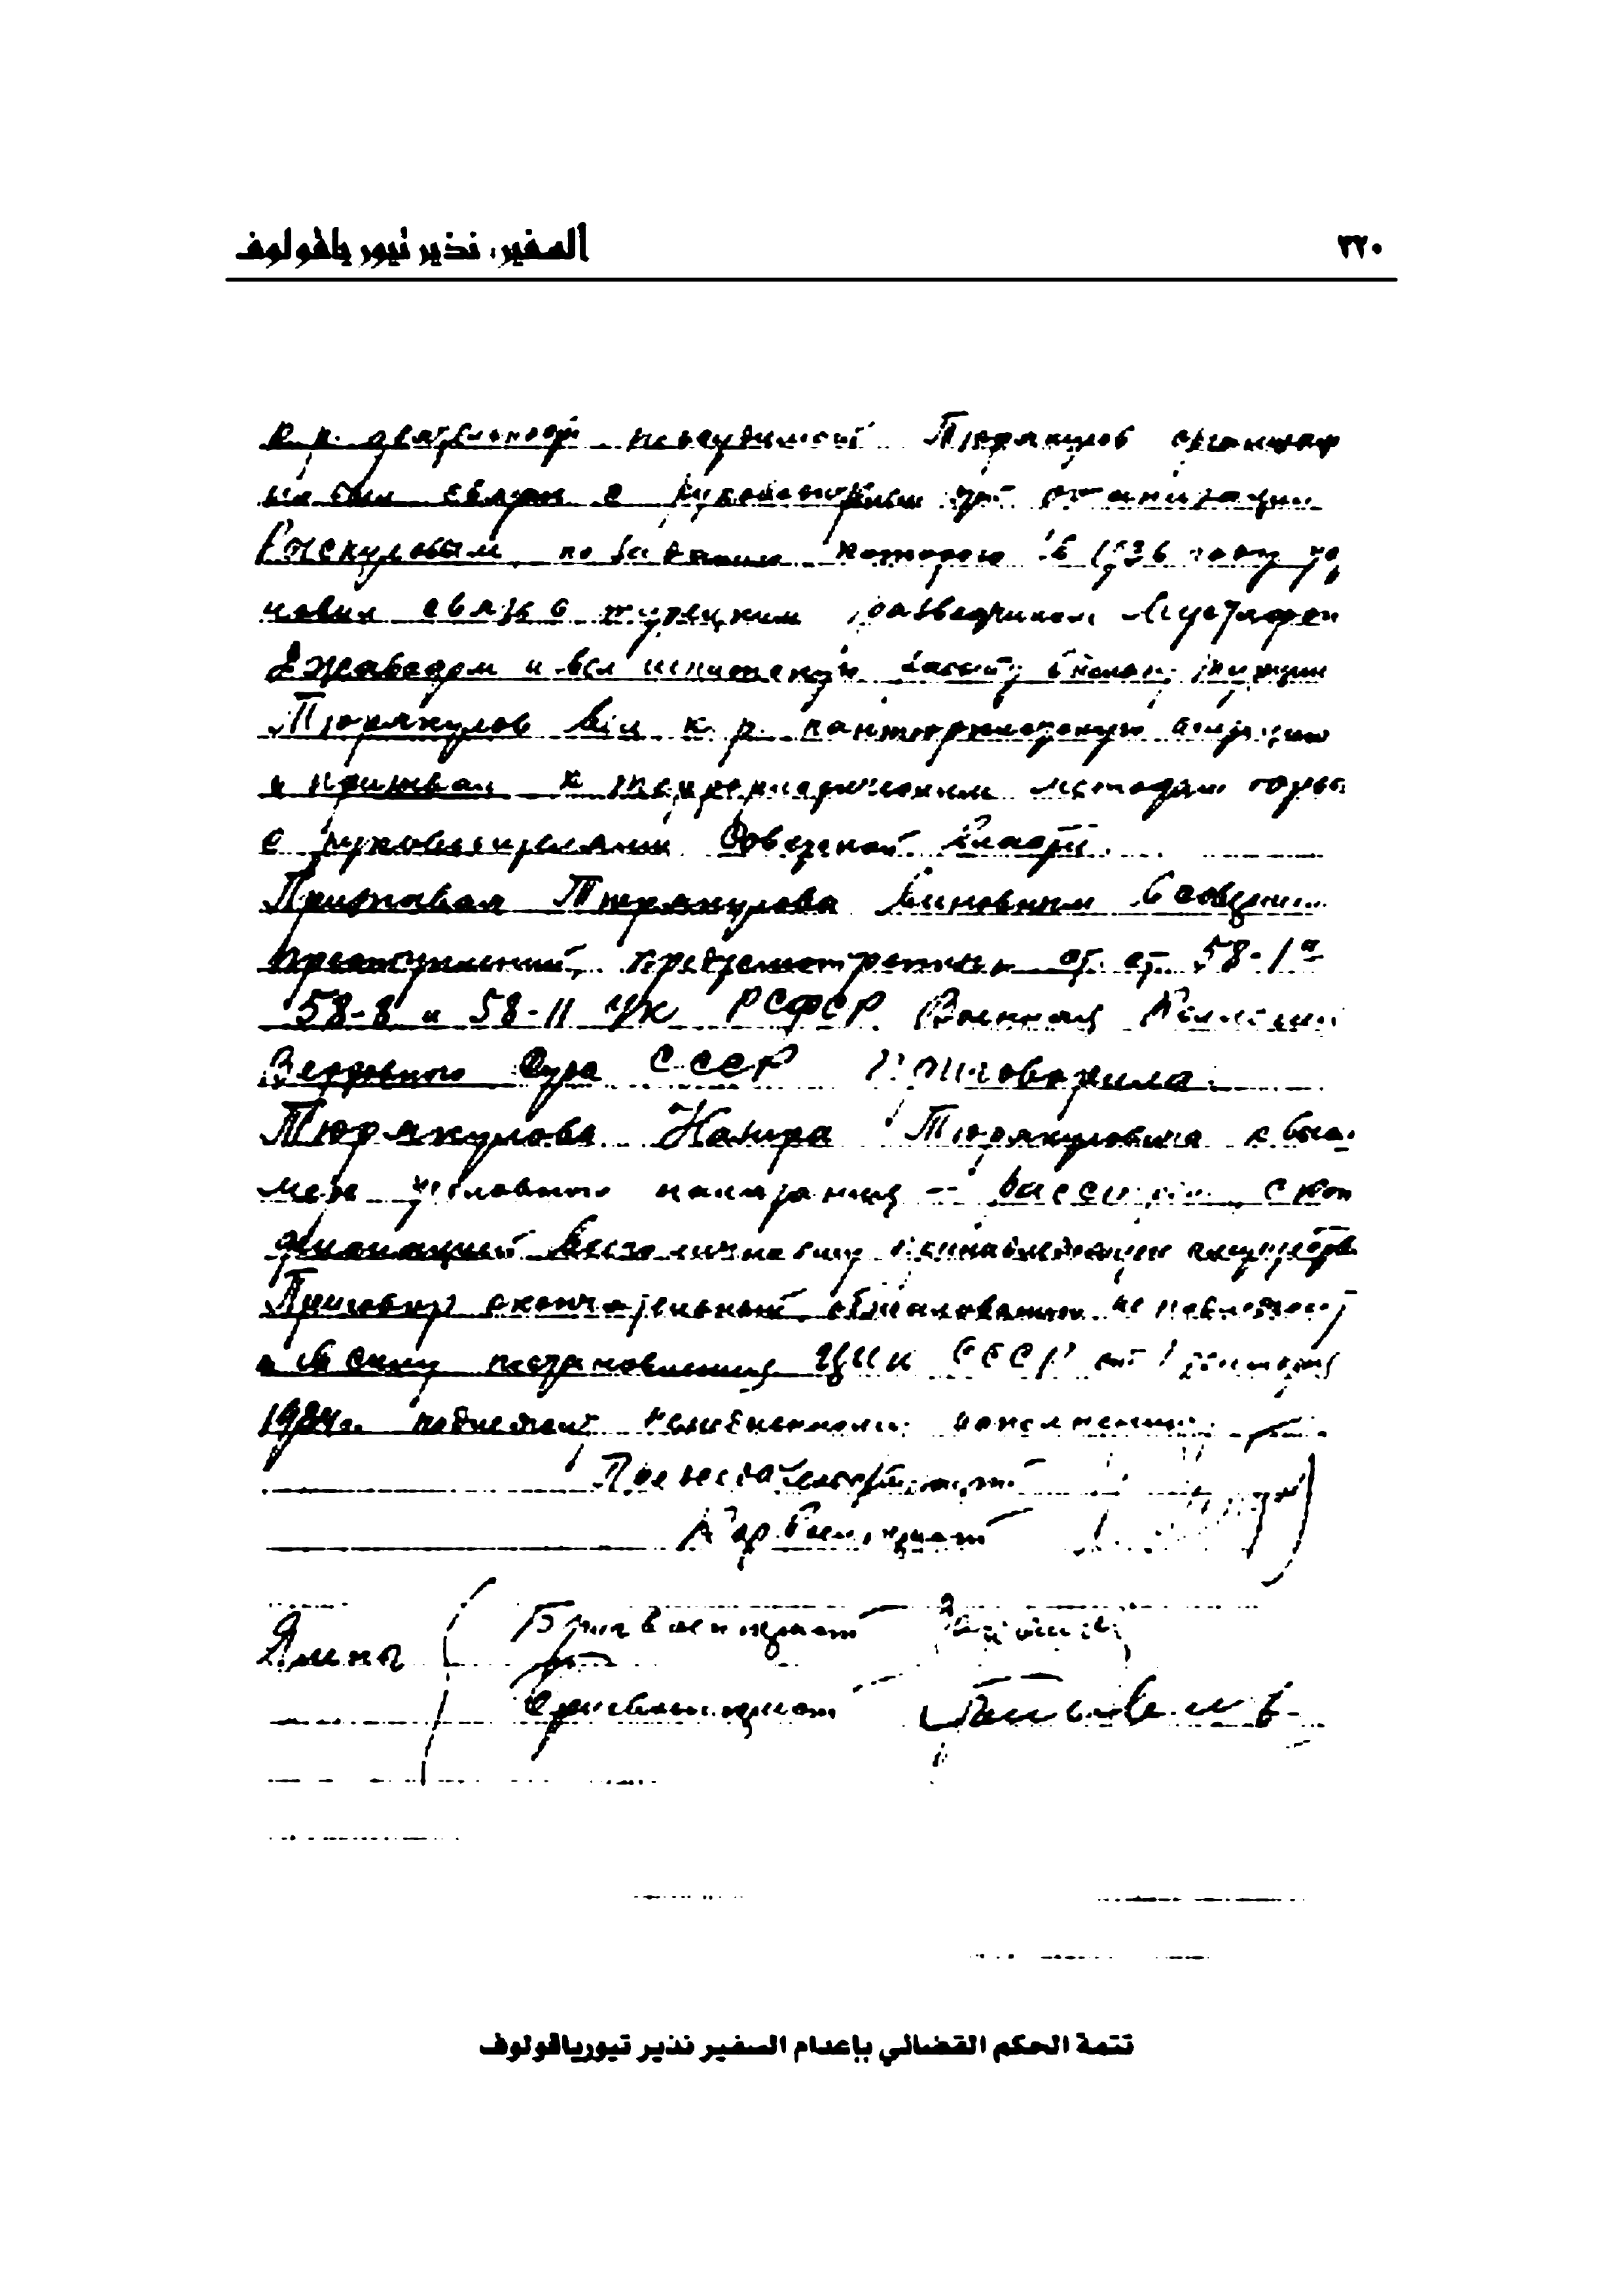 السفير: نذير تيورياقولوف ٣٢٠
к. р. деятельност подсудимый Тюрякулов организац
был связан с руководителем организации
Рыскуловым, по заданию которого в 1936 году ус
новил связь с турецким разведчиком Мустафой
Джавадом и вел шпионскую работу в пользу Турции
Тюрякулов вел к. р. пантюркистскую агитацию
и призывал к террористическим методам борьб
с руководителями Советской власти.
Признавая Тюрякулова виновным в соверш
преступлений, предусмотренных ст. ст. 58-1а
58-8 и 58-11 УК РСФСР Военная Коллегия
Верховного Суда СССР приговорила:
Тюрякулова Назира Тюрякуловича к высш.
мере уголовного наказания – расстрелу, с кон
фискацией всего лично ему принадлежащего имуществ
Приговор окончательный, обжалованию не подлежит
и в силу постановления ЦИК СССР от 1 декабря
1934г. подлежит немедленному исполнению.
Председательствующий
Члены Бригвоенюрист
Бригвоенюрист
تتمة الحكم القضائي بإعدام السفير نذير تيورياقولوف